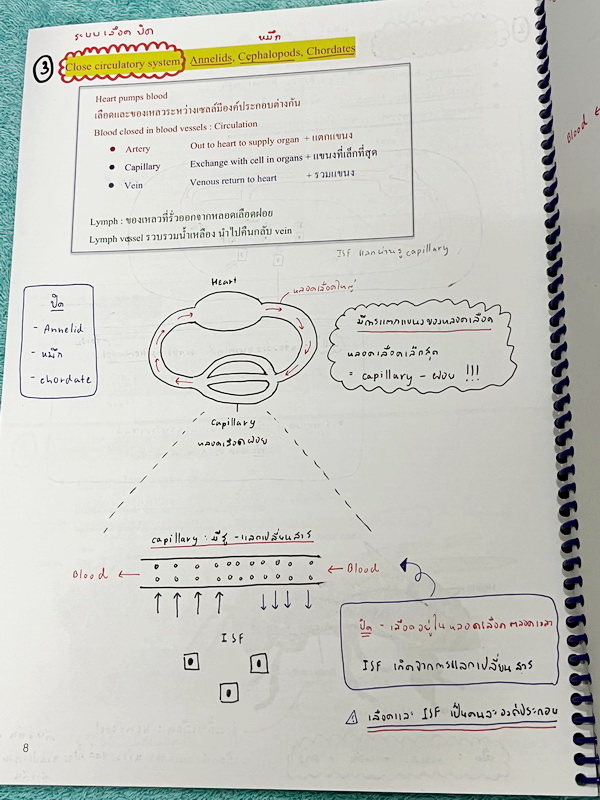 ระบบเลือด ปิด
หมึก
3 Close circulatory system: Annelids, Cephalopods, Chordates
Heart pumps blood
เลือดและของเหลวระหว่างเซลล์มีองค์ประกอบต่างกัน
Blood closed in blood vessels : Circulation
● Artery Out to heart to supply organ + แตกแขนง
● Capillary Exchange with cell in organs + แขนงที่เล็กที่สุด
● Vein Venous return to heart + รวมแขนง
Lymph : ของเหลวที่รั่วออกจากหลอดเลือดฝอย
Lymph vessel รวบรวมน้ำเหลือง นำไปคืนกลับ vein
Blood
ISF แลกผ่านรู capillary
Heart
หลอดเลือดใหญ่
ปิด
- Annelid
- หมึก
- chordate
มีการแตกแขนงของหลอดเลือด
หลอดเลือดเล็กสุด
= capillary - ฝอย !!!
capillary
หลอดเลือดฝอย
capillary : มีรู - แลกเปลี่ยนสาร
Blood ← ← Blood
ISF
ปิด - เลือดอยู่ใน หลอดเลือด ตลอดเวลา
ISF เกิดจากการแลกเปลี่ยน สาร
⚠ เลือดและ ISF เป็นคนละองค์ประกอบ
8